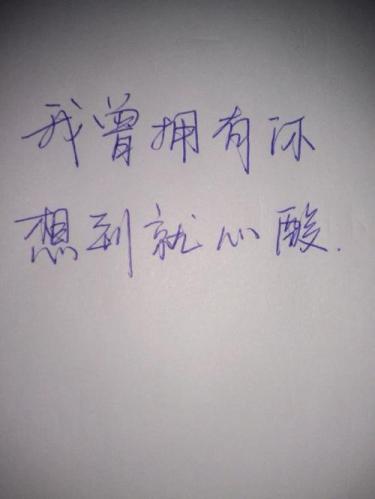 我曾拥有你
想到就心酸.